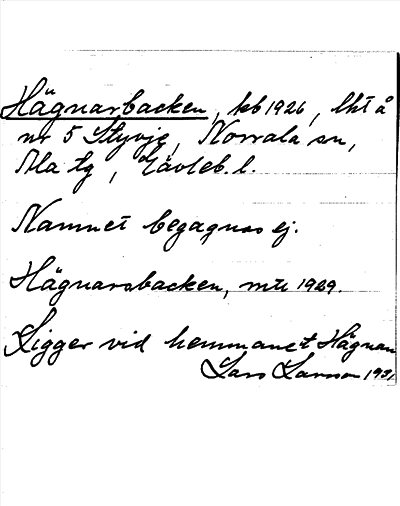 Hägnarbacken, kb 1926, lht å
nr 5 Styvje, Norrala sn,
Ala tg, Gävleb. l.
Namnet begagnas ej.
Hägnarsbacken, mtl 1929.
Ligger vid hemmanet Hägnan
Lars Larsson 1931